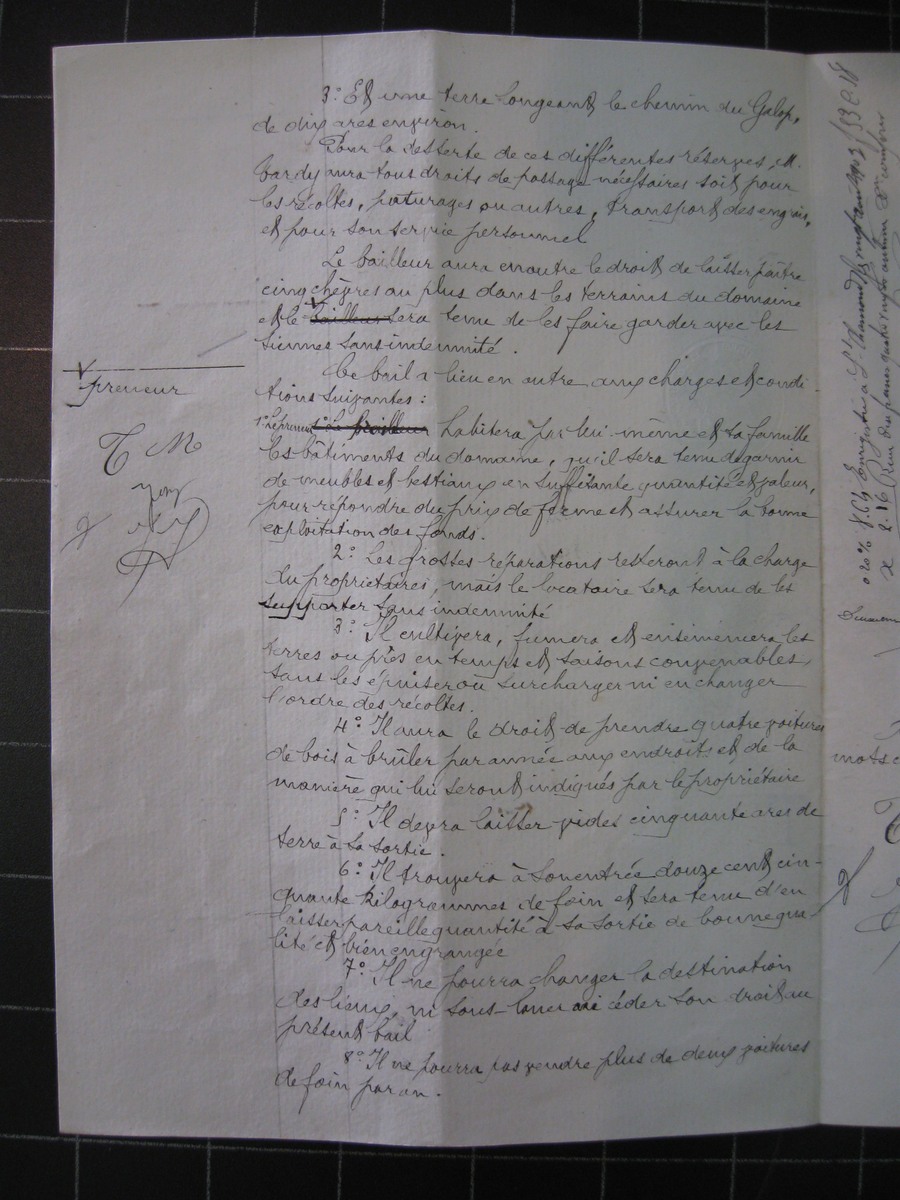 3° Et une terre longeant le chemin du Galop,
de dix ares environ.
Pour la desserte de ces différentes réserves, M.
Bardy aura tous droits de passage nécessaires soit pour
les récoltes, paturages ou autres, transport des engrais,
et pour son service personnel
Le bailleur aura en outre le droit de laisser paître
cinq chèvres au plus dans les terrains du domaine
et le bailleur sera tenu de les faire garder avec les
siennes sans indemnité.
Preneur
T M
Ce bail a lieu en outre aux charges et condi-
tions suivantes :
1° Le preneur 1° Le bailleur habitera par lui-même et sa famille
les bâtiments du domaine, qu'il sera tenu de garnir
de meubles et bestiaux en suffisante quantité et valeur,
pour répondre du prix de ferme et assurer la bonne
exploitation des fonds.
2° Les grosses réparations resteront à la charge
du propriétaires, mais le locataire sera tenu de les
supporter sans indemnité
3° Il cultivera, fumera et ensemencera les
terres ou prés en temps et saisons convenables,
sans les épuiser ou surcharger ni en changer
l'ordre des récoltes.
4° Il aura le droit de prendre quatre voitures
de bois à brûler par année aux endroits et de la
manière qui lui seront indiqués par le propriétaire
5° Il devra laisser vides cinquante ares de
terre à sa sortie.
6° Il trouvera à son entrée douze cent cin-
quante kilogrammes de foin et sera tenu d'en
laisser pareille quantité à sa sortie de bonne qua-
lité et bien engrangée
7° Il ne pourra changer la destination
des lieux, ni sous-louer ni céder son droit au
présent bail
8° Il ne pourra pas vendre plus de deux voitures
de foin par an.
mots